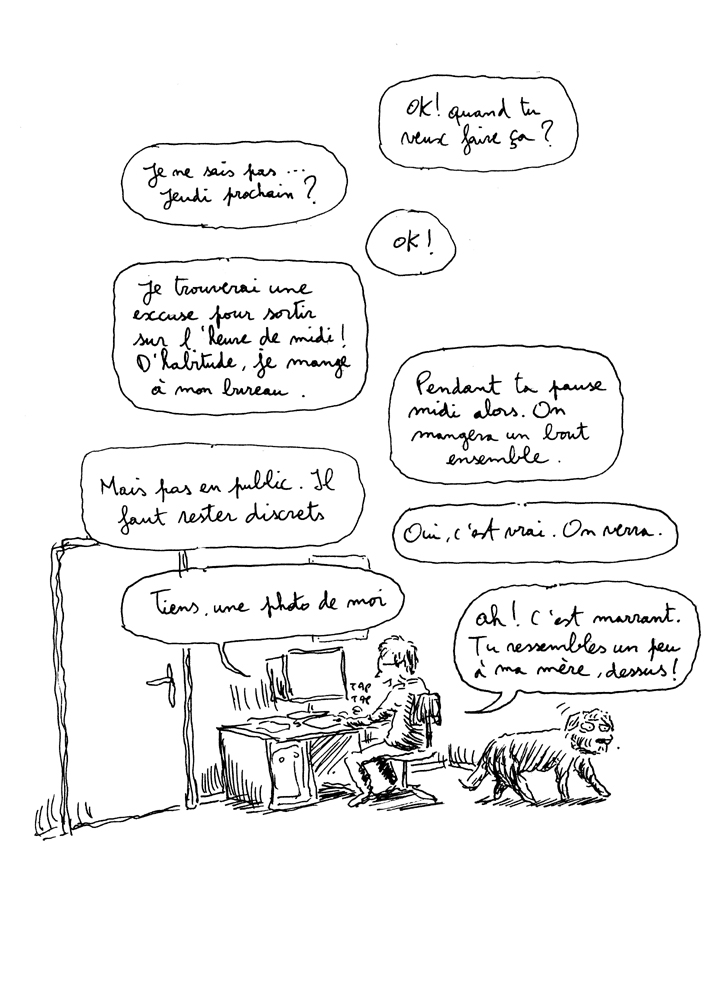 OK! quand tu
veux faire ça ?
Je ne sais pas ...
Jeudi prochain ?
OK !
Je trouverai une
excuse pour sortir
sur l'heure de midi !
D'habitude, je mange
à mon bureau .
Pendant ta pause
midi alors. On
mangera un bout
ensemble .
Mais pas en public. Il
faut rester discrets
Oui, c'est vrai. On verra.
Tiens, une photo de moi
ah ! C'est marrant.
Tu ressembles un peu
à ma mère, dessus !
TAP
TAP